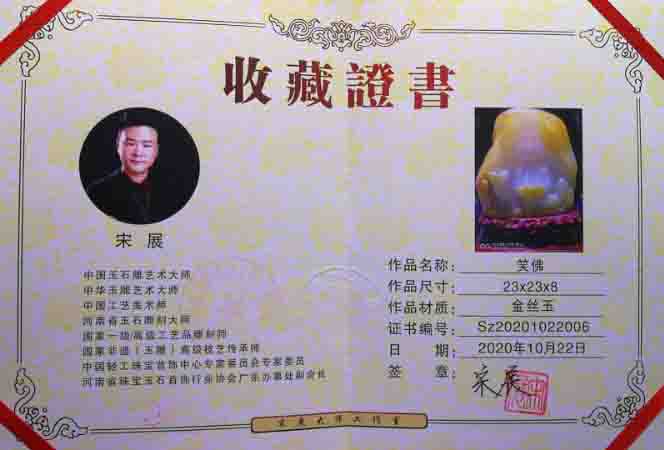 收藏證書
宋 展
中国玉石雕艺术大师
中华玉雕艺术大师
中国工艺美术师
河南省玉石雕刻大师
国家一级/高级工艺品雕刻师
国家非遗（玉雕）高级技艺传承师
中国轻工珠宝首饰中心专家委员会专家委员
河南省珠宝玉石首饰行业协会广东办事处副会长
作品名称： 笑佛
作品尺寸： 23x23x8
作品材质： 金丝玉
证书编号： Sz20201022006
日 期： 2020年10月22日
签 章： 宋展
宋展大师工作室